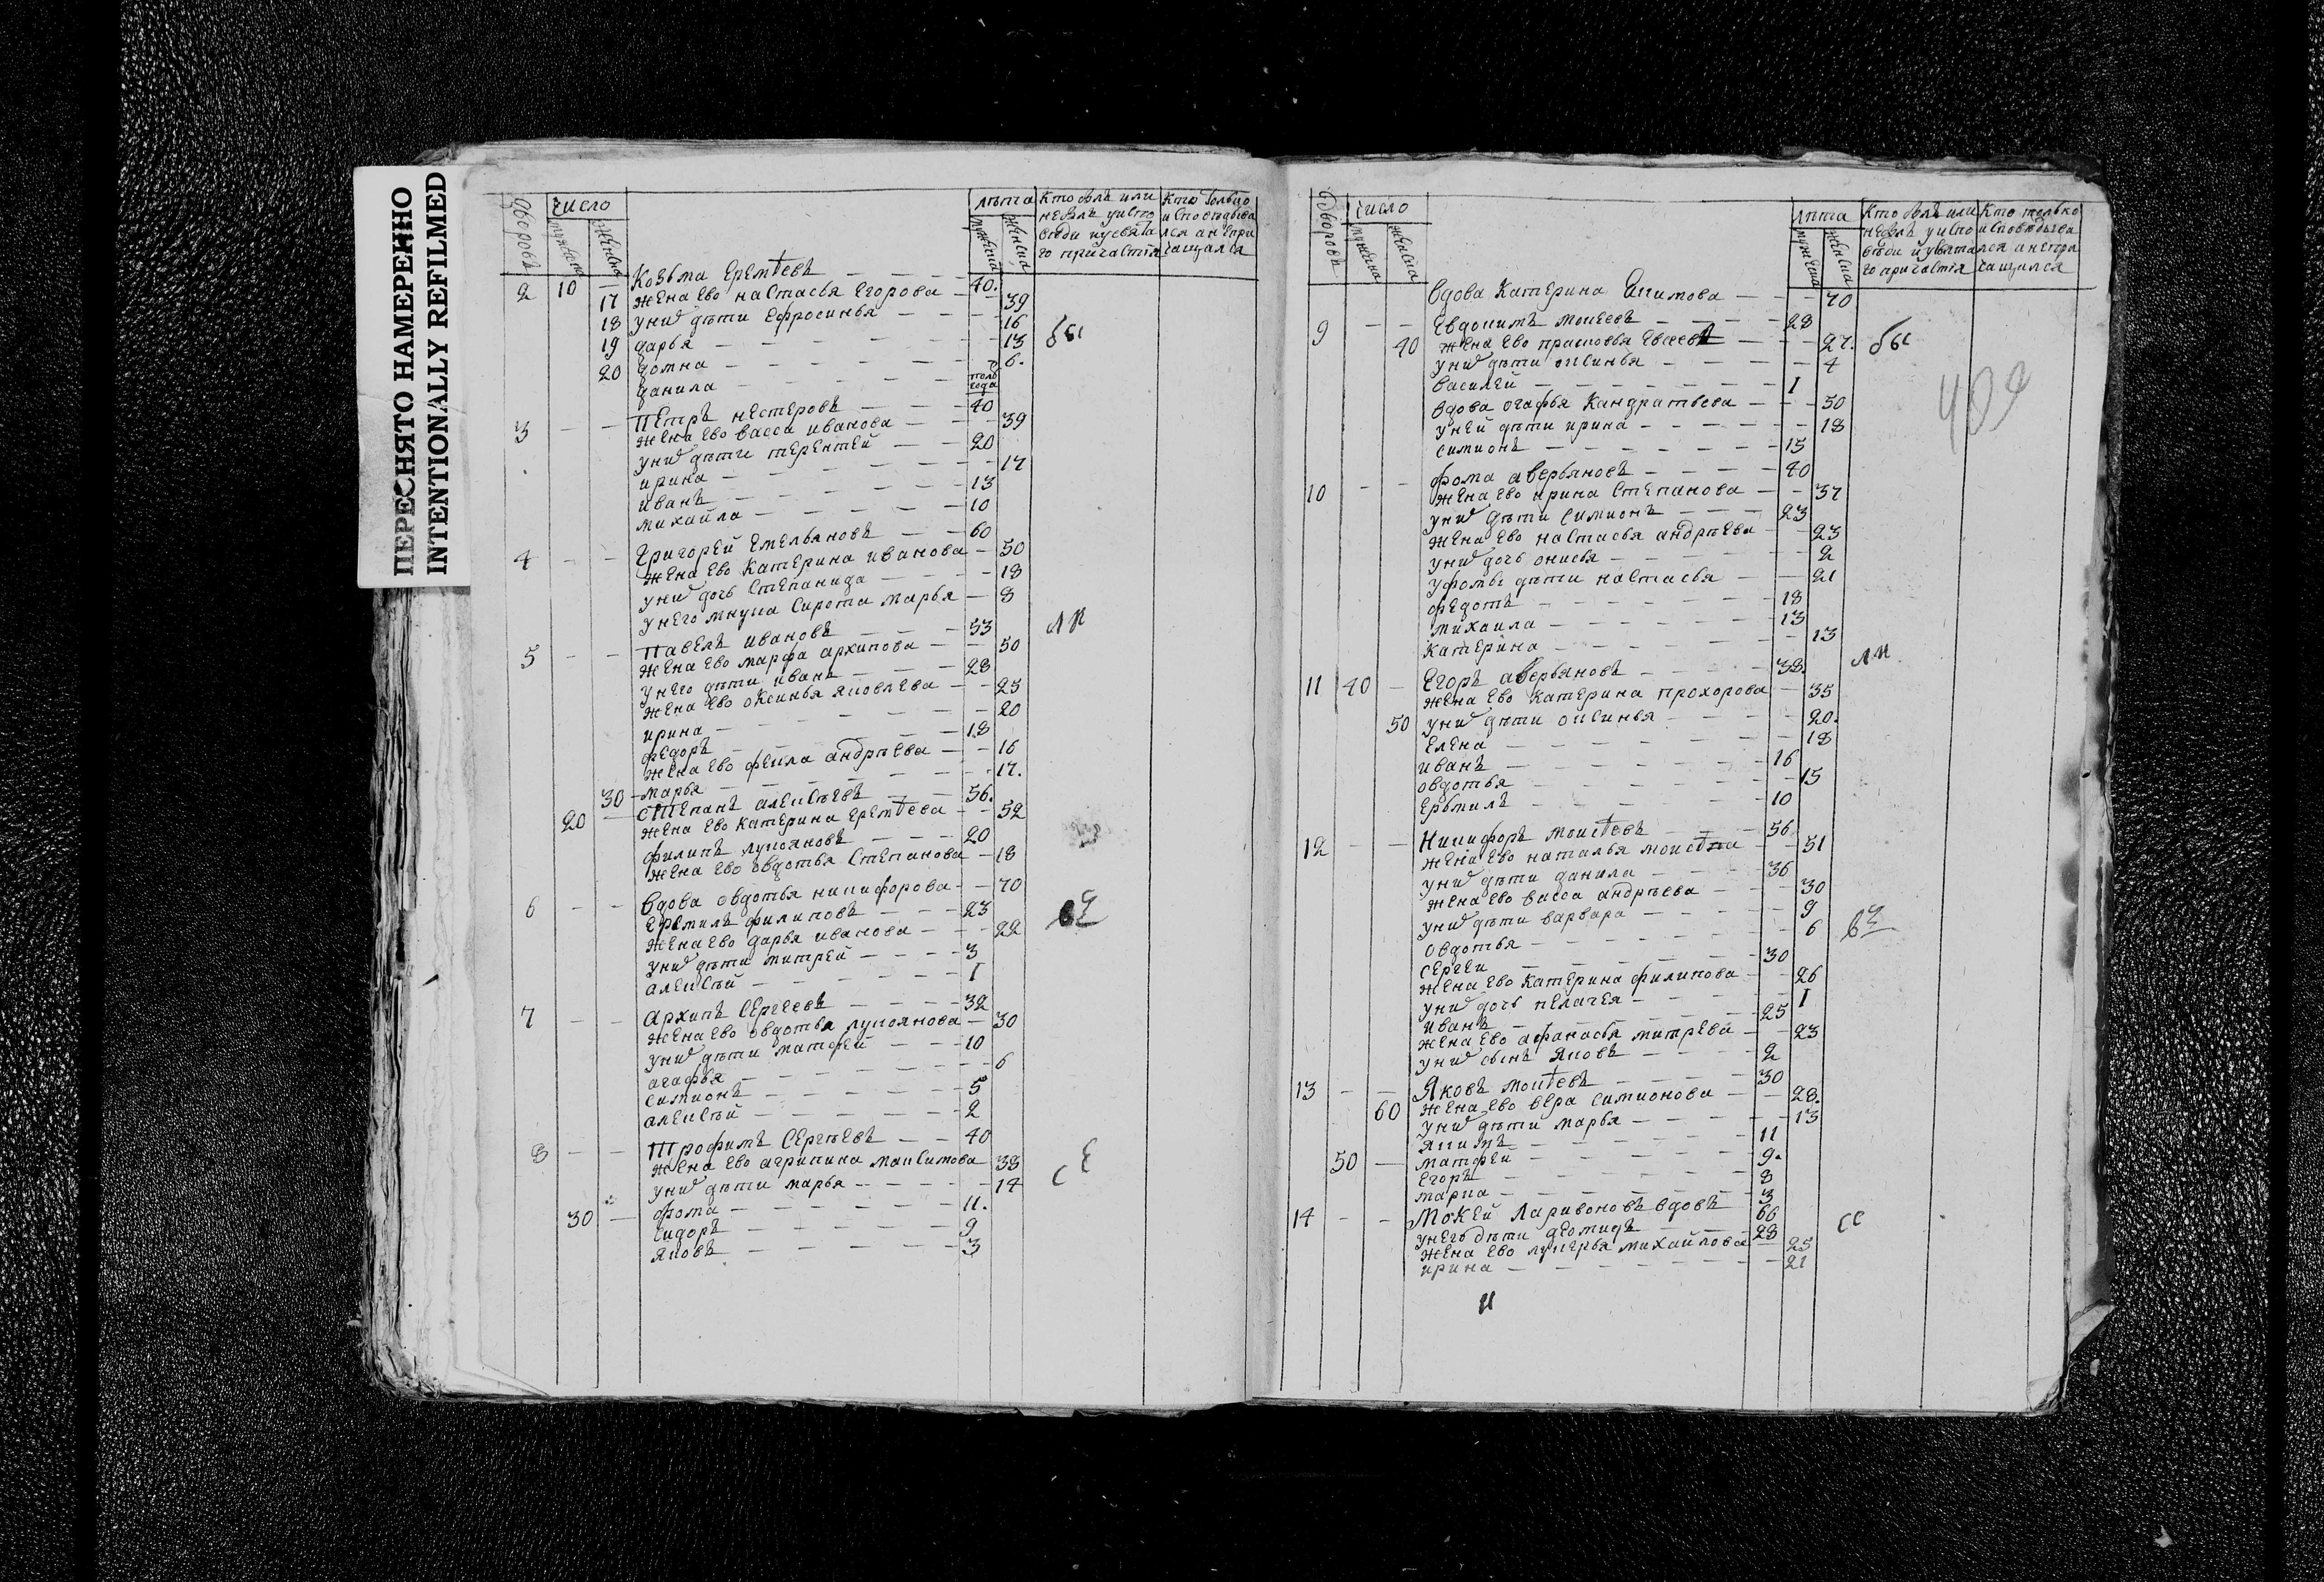 ПЕРЕСНЯТО НАМЕРЕННО
INTENTIONALLY REFILMED
дворовъ
число
мужеска
женска
лѣта
мужеска
женска
Кто былъ или
не былъ у испо
вѣди и у свята
го причастїя
Кто только
исповѣдыва
лся а не при
чащался
2 10 — Козьма Еремѣевъ — 40.
17 жена ево настасья Егорова — 39
18 у них дѣти Ефросинья — 16
19 дарья — 13
20 домна — 6.
данила — полгода
бы
3 — — Петръ нестеровъ — 40
жена ево васса иванова — 39
у них дѣти терентей — 20
ирина — 17
иванъ — 13
михаила — 10
4 — — Григорей Емельяновъ — 60
жена ево катерина иванова — 50
у них дочь Степанида — 18
у него внука сирота марья — 8
ли
5 — — Павелъ ивановъ — 53
жена ево марфа архипова — 50
у него дѣти иванъ — 28
жена ево оксинья яковлева — 25
ирина — 20
федоръ — 18
жена ево фекла андрѣева — 16
30 марья — 17.
20 — степанъ алексѣевъ — 56.
жена ево катерина Еремѣева — 52
филипъ лукояновъ — 20
жена ево овдотья Степанова — 18
6 — — вдова овдотья никифорова — 70
Ермилъ филиповъ — 23
жена ево дарья иванова — 22
у них дѣти митрей — 3
алексѣй — 1
7 — — Архипъ Сергеевъ — 32
жена ево овдотья лукоянова — 30
у них дѣти матфей — 10
агафья — 6
симионъ — 5
алексѣй — 2
8 — — Трофимъ Сергѣевъ — 40
жена ево агрипина максимова 38
у них дѣти марья — 14
30 — фома — 11.
сидоръ — 9
яковъ — 3
дворовъ
число
мужеска
женска
лѣта
мужеска
женска
Кто былъ или
не былъ у испо
вѣди и у свята
го причастїя
Кто только
исповѣдыва
лся а не при
чащился
вдова Катерина Екимова — 70
9 — — Евдокимъ моисеевъ — 28
40 жена ево прасковья Евсеева — 27.
у них дѣти оксинья — 4
василей — 1
вдова огафья Кандратьева — 50
у ней дѣти ирина — 18
симионъ — 15
бы
409
10 — — фома аверьяновъ — 40
жена ево ирина Степанова — 37
у них дѣти симионъ — 23
жена ево настасья андрѣева — 23
у них дочь онисья — 2
у фомы дѣти настасья — 21
федотъ — 18
михаила — 13
катерина — 13
ли
11 40 — Егоръ аверьяновъ — 38.
жена ево катерина прохорова — 35
50 у них дѣти оксинья — 20.
Елена — 18
иванъ — 16
овдотья — 15
Ермилъ — 10
12 — — Никифоръ моисѣевъ — 56
жена ево наталья — 51
у них дѣти данила — 36
жена ево васса андрѣева — 30
у них дѣти варвара — 9
овдотья — 6
сергеи — 30
жена ево катерина филипова — 26
у них дочь пелагея — 1
иванъ — 25
жена ево афанасья митрева — 23
у них сынъ яковъ — 2
13 — — Яковъ моисѣевъ — 30
60 жена ево вера симионова — 28.
у них дѣти марья — 13
якимъ — 11
50 — матфей — 9.
Егоръ — 8
марка — 3
14 — — Мокей Ларивоновъ вдовъ 60
у него дѣти деомидъ — 28
жена ево лукерья михайлова — 25
ирина — 21
сс
и